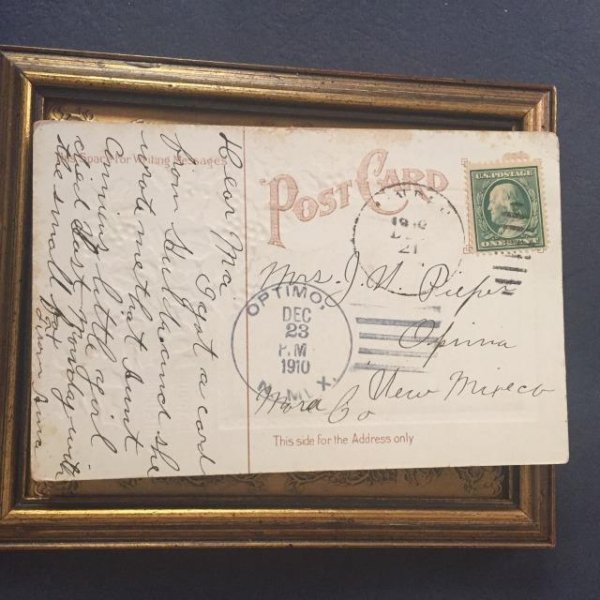 This Space for Writing Messages
Dear Ma
I got a card
from Huldia and she
wrote me that Aunt
Annies little girl
died last Monday with
the small pox
from Anna
POST CARD
U.S. POSTAGE
ONE CENT
21
OPTIMO,
DEC
23
P.M
1910
N. MEX.
Mrs. J. H. Pieper
Optimo
Mora Co
New Mixeco
This side for the Address only